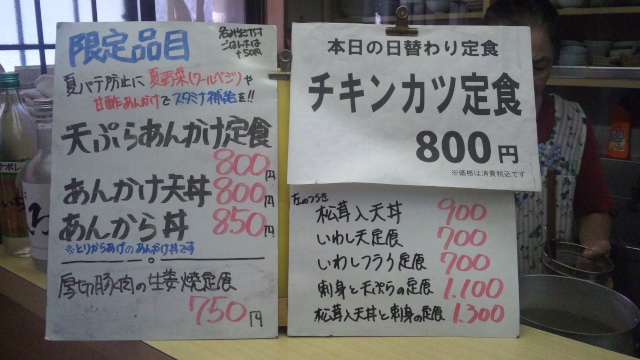 限定品目
夏バテ防止に夏野菜(クールベジ)や
甘酢あんかけでスタミナ補給を!!
天ぷらあんかけ定食
800円
あんかけ天丼 800円
あんから丼 850円
※とりからあげのあんかけ丼です
厚切豚肉の生姜焼定食
750円
本日の日替わり定食
チキンカツ定食
800円
※価格は消費税込です
左のつづき
松茸入天丼 900
いわし天定食 700
いわしフライ定食 700
刺身と天ぷらの定食 1.100
松茸入天丼と刺身の定食 1.300